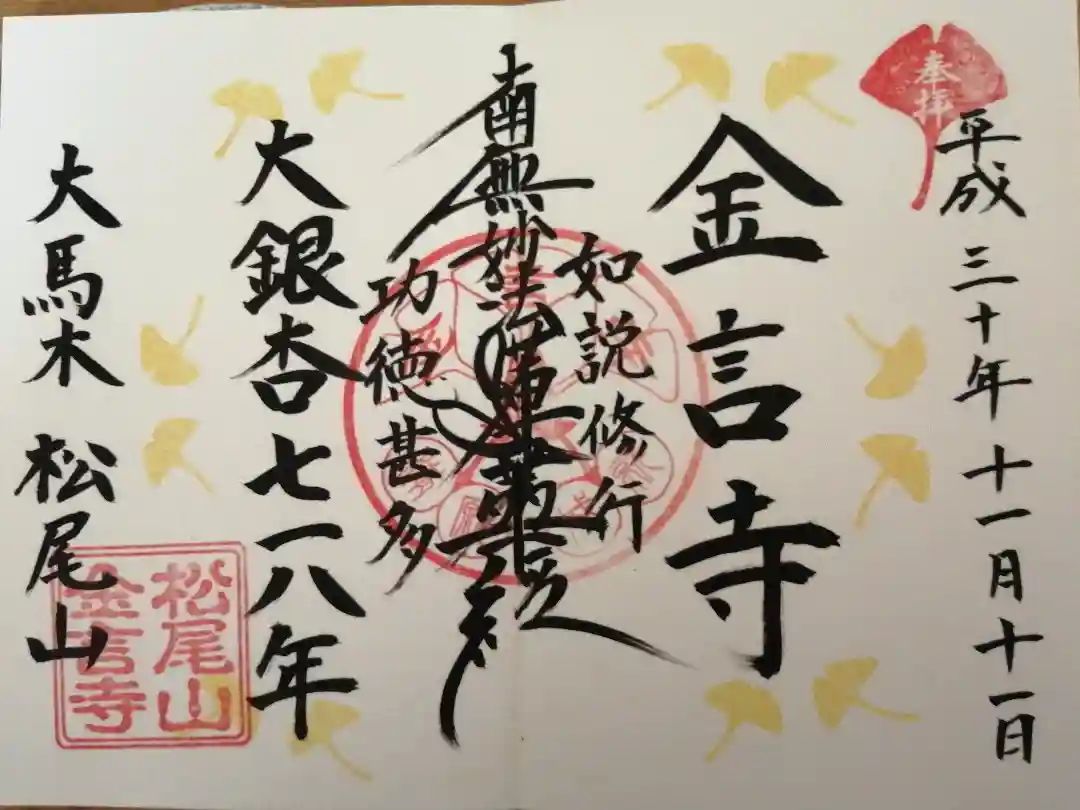 奉拝
平成三十年十一月十一日
金言寺
如説修行
南無妙法蓮華経
功徳甚多
大銀杏七一八年
大馬木 松尾山
松尾山
金言寺